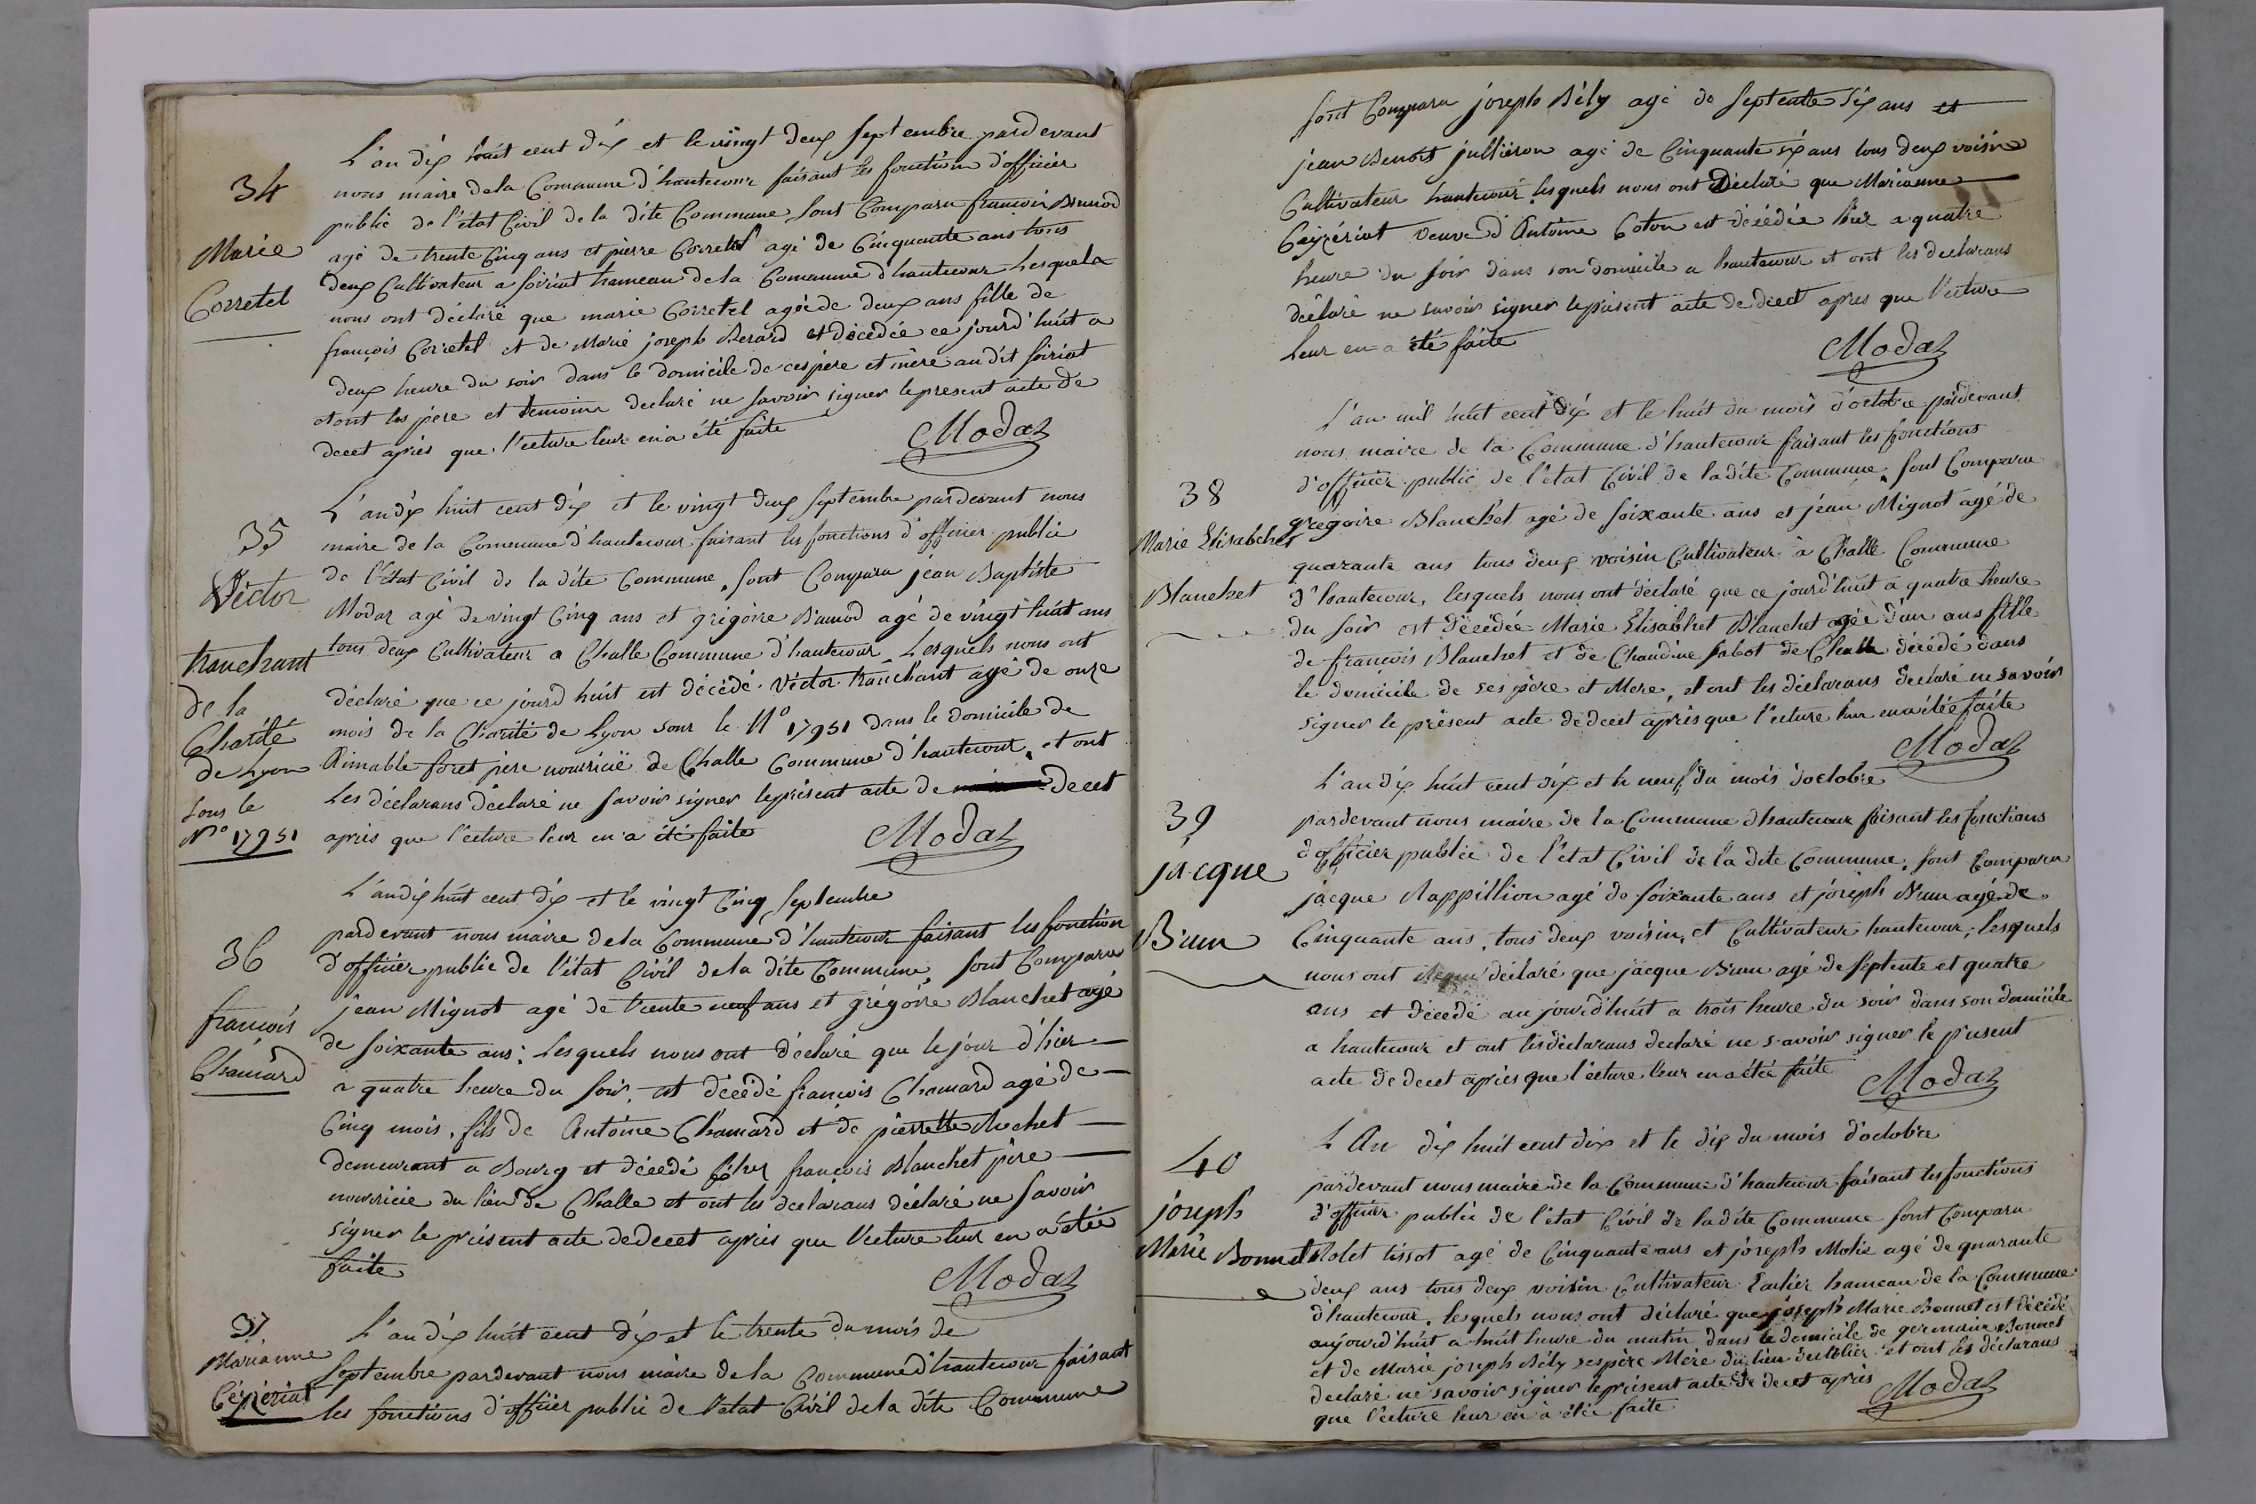 34
Marie
Corretel
L'an dix huit cent dix et le vingt deux septembre pardevant
nous maire dela Commune d'hautecour faisant les fonction d'officier
public de l'état Civil de la dite Commune sont Comparu françois Brunod
agé de trente Cinq ans et pierre Corretel agé de Cinquante ans tous
deux Cultivateur a soiriat hameau dela Commune d'hautecour Lesquels
nous ont déclaré que marie Corretel agée de deux ans fille de
françois Corretel et de Marie joseph Berard et décédée ce jourd'huit a
deux heure du soir dans le domicile de ces père et mère audit soiriat
et ont les père et temoins declaré ne savoir signer le present acte de
decet après que l'ecture leur en a été faite
Modaz
35
Victor
tranchant
de la
Charité
de Lyon
sous le
N° 17951
L'an dix huit cent dix et le vingt deux septembre pardevant nous
maire de la Commune d'hautecour faisant les fonctions d'officier public
de l'état Civil de la dite Commune, sont Comparu jean Baptiste
Modaz agé de vingt Cinq ans et grégoire Brunod agé de vingt huit ans
tous deux Cultivateur a Challe Commune d'hautecour Lesquels nous ont
déclaré que ce jourd huit est décédé Victor tranchant agé de onze
mois de la Charité de Lyon sous le N° 17951 dans le domicile de
Aimable foret père nourricié de Challe Commune d'hautecour, et ont
Les déclarans déclaré ne savoir signer le présent acte de decet
après que l'ecture leur en a été faite
Modaz
36
françois
Chamard
L'an dix huit cent dix et le vingt Cinq septembre
pardevant nous maire dela Commune d'hautecour faisant les fonction
d'officier public de l'état Civil dela dite Commune, sont Comparus
jean Mignot agé de trente neuf ans et grégoire Blanchet agé
de soixante ans; Lesquels nous ont déclaré que le jour d'hier
a quatre heure du soir, est décédé françois Chamard agé de
Cinq mois, fils de Antoine Chamard et de pierrette Rochet
demeurant a Bourg et décédé Chez françois Blanchet père
nourricie du lieu de Challe et ont les declarans déclaré ne savoir
signer le présent acte de decet après que l'ecture leur en a étée
faite
Modaz
37
Marianne
Cézériat
L'an dix huit cent dix et le trente du mois de
Septembre pardevant nous maire dela Commune d'hautecour faisant
les fonctions d'officier public de l'état Civil dela dite Commune
sont Comparu joseph Bély agé de septente six ans et
jean Benoit jullieron agé de Cinquante six ans tous deux voisins
Cultivateur hautecour, lesquels nous ont Déclaré que Marianne
Cézériat veuve d'Antoine Coton est décédée hier a quatre
heure du soir dans son domicile a hautecour et ont les declarans
déclaré ne savoir signer le présent acte de decet apres que l'ecture
leur en a été faite
Modaz
38
Marie Elisabethet
Blanchet
L'an mil huit cent dix et le huit du mois d'octobre pardevant
nous maire de la Commune d'hautecour faisant les fonctions
d'officier public de l'état Civil de ladite Commune, sont Comparu
gregoire Blanchet agé de soixante ans et jean Mignot agé de
quarante ans tous deux voisin Cultivateur à Challe Commune
d'hautecour, lesquels nous ont déclaré que ce jourd'huit a quatre heure
du soir est décédée Marie Elisabhet Blanchet agée d'un ans fille
de françois Blanchet et de Claudine sabot de Challe décédé dans
le domicile de ses père et Mere, et ont les déclarans declaré ne savoir
signer le présent acte de decet après que l'ecture leur en a étée faite
Modaz
39
jacque
B'run
L'an dix huit cent dix et le neuf du mois d'octobre
pardevant nous maire de la Commune d'hautecour faisant les fonctions
d'officier public de l'état Civil de la dite Commune, sont Comparu
jacque Rappillion agé de soixante ans et joseph B'run agé de
Cinquante ans, tous deux voisin, et Cultivateur hautecour; lesquels
nous ont déclaré que jacque B'run agé de septente et quatre
ans et décédé au jourd'huit a trois heure du soir dans son domicile
a hautecour et ont les déclarans declaré ne savoir signer le présent
acte de decet après que l'ecture leur en a été faite
Modaz
40
joseph
Marie Bonnet
L'An dix huit cent dix et le dix du mois d'octobre
pardevant nous maire de la Commune d'hautecour faisant les fonctions
d'officier public de l'état Civil de ladite Commune sont Comparu
Rolet tissot agé de Cinquante ans et joseph Molie agé de quarante
deux ans tous deux voisin Cultivateur hameau de la Commune
d'hautecour, lesquels nous ont déclaré que joseph Marie Bonnet est décédé
aujourd'huit a huit heure du matin dans le domicile de germain Bonnet
et de Marie joseph Bély ses père Mère du lieu et ont les déclarans
declaré ne savoir signer le présent acte de decet après
que l'ecture leur en a étée faite
Modaz